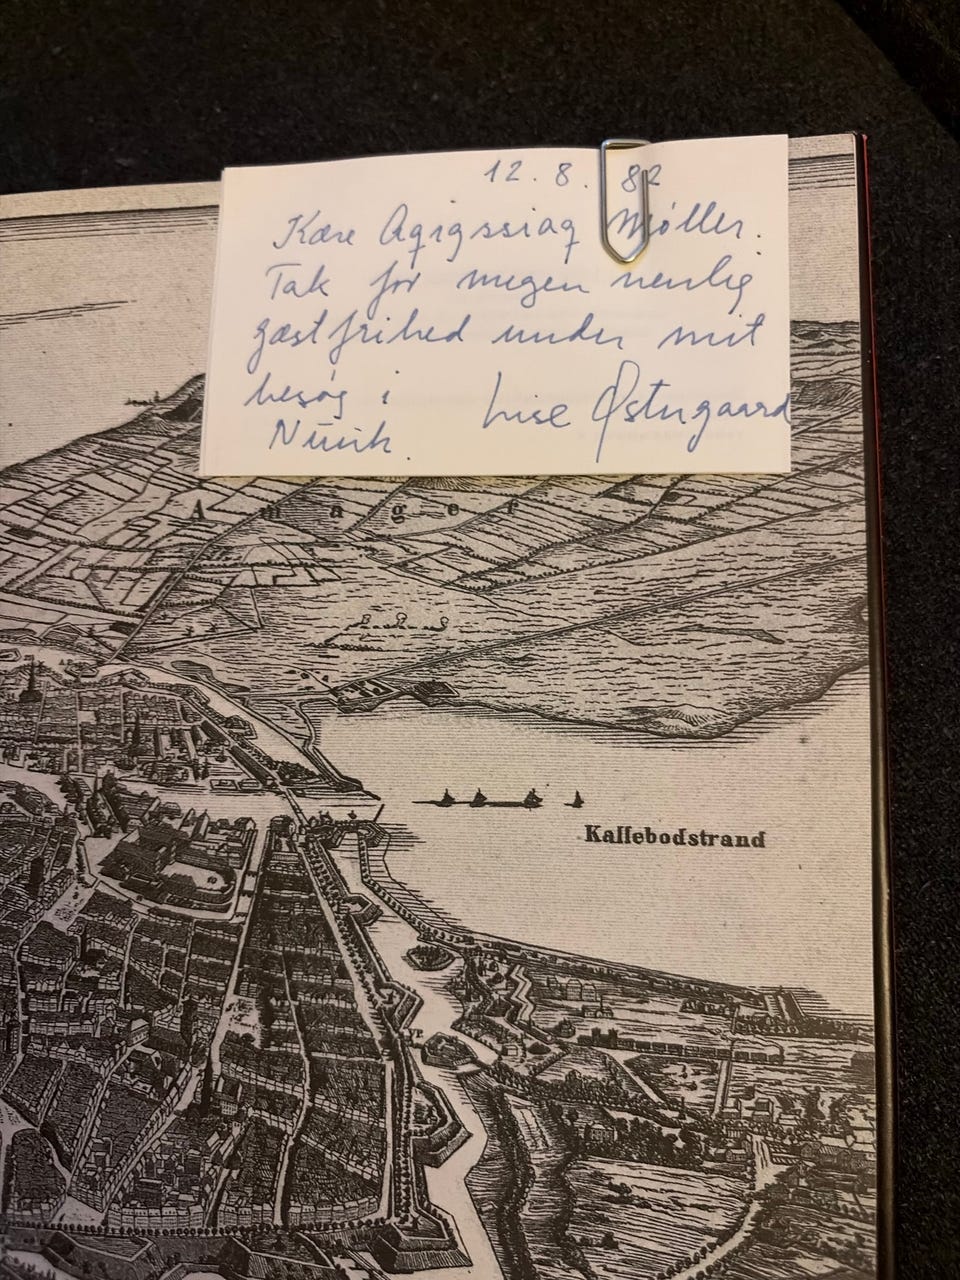 12. 8. 82
Kære Aqigssiaq Møller.
Tak for megen venlig
gæstfrihed under mit
besøg i Lise Østergaard
Nuuk.
Amager
Kallebodstrand